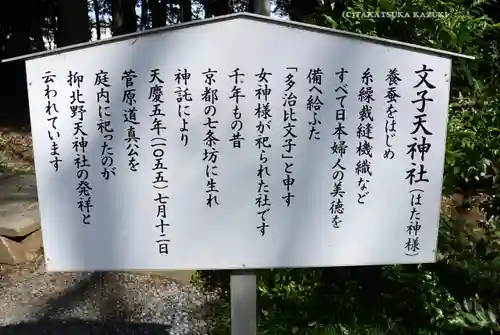 (C)TAKATSUKA KAZUKI
文子天神社(はた神様)
養蚕をはじめ
糸繰裁縫機織など
すべて日本婦人の美徳を
備へ給ふた
「多治比文子」と申す
女神様が祀られた社です
千年もの昔
京都の七条坊に生れ
神託により
天慶五年(一〇五五)七月十二日
菅原道真公を
庭内に祀ったのが
柳北野天神社の発祥と
云われています